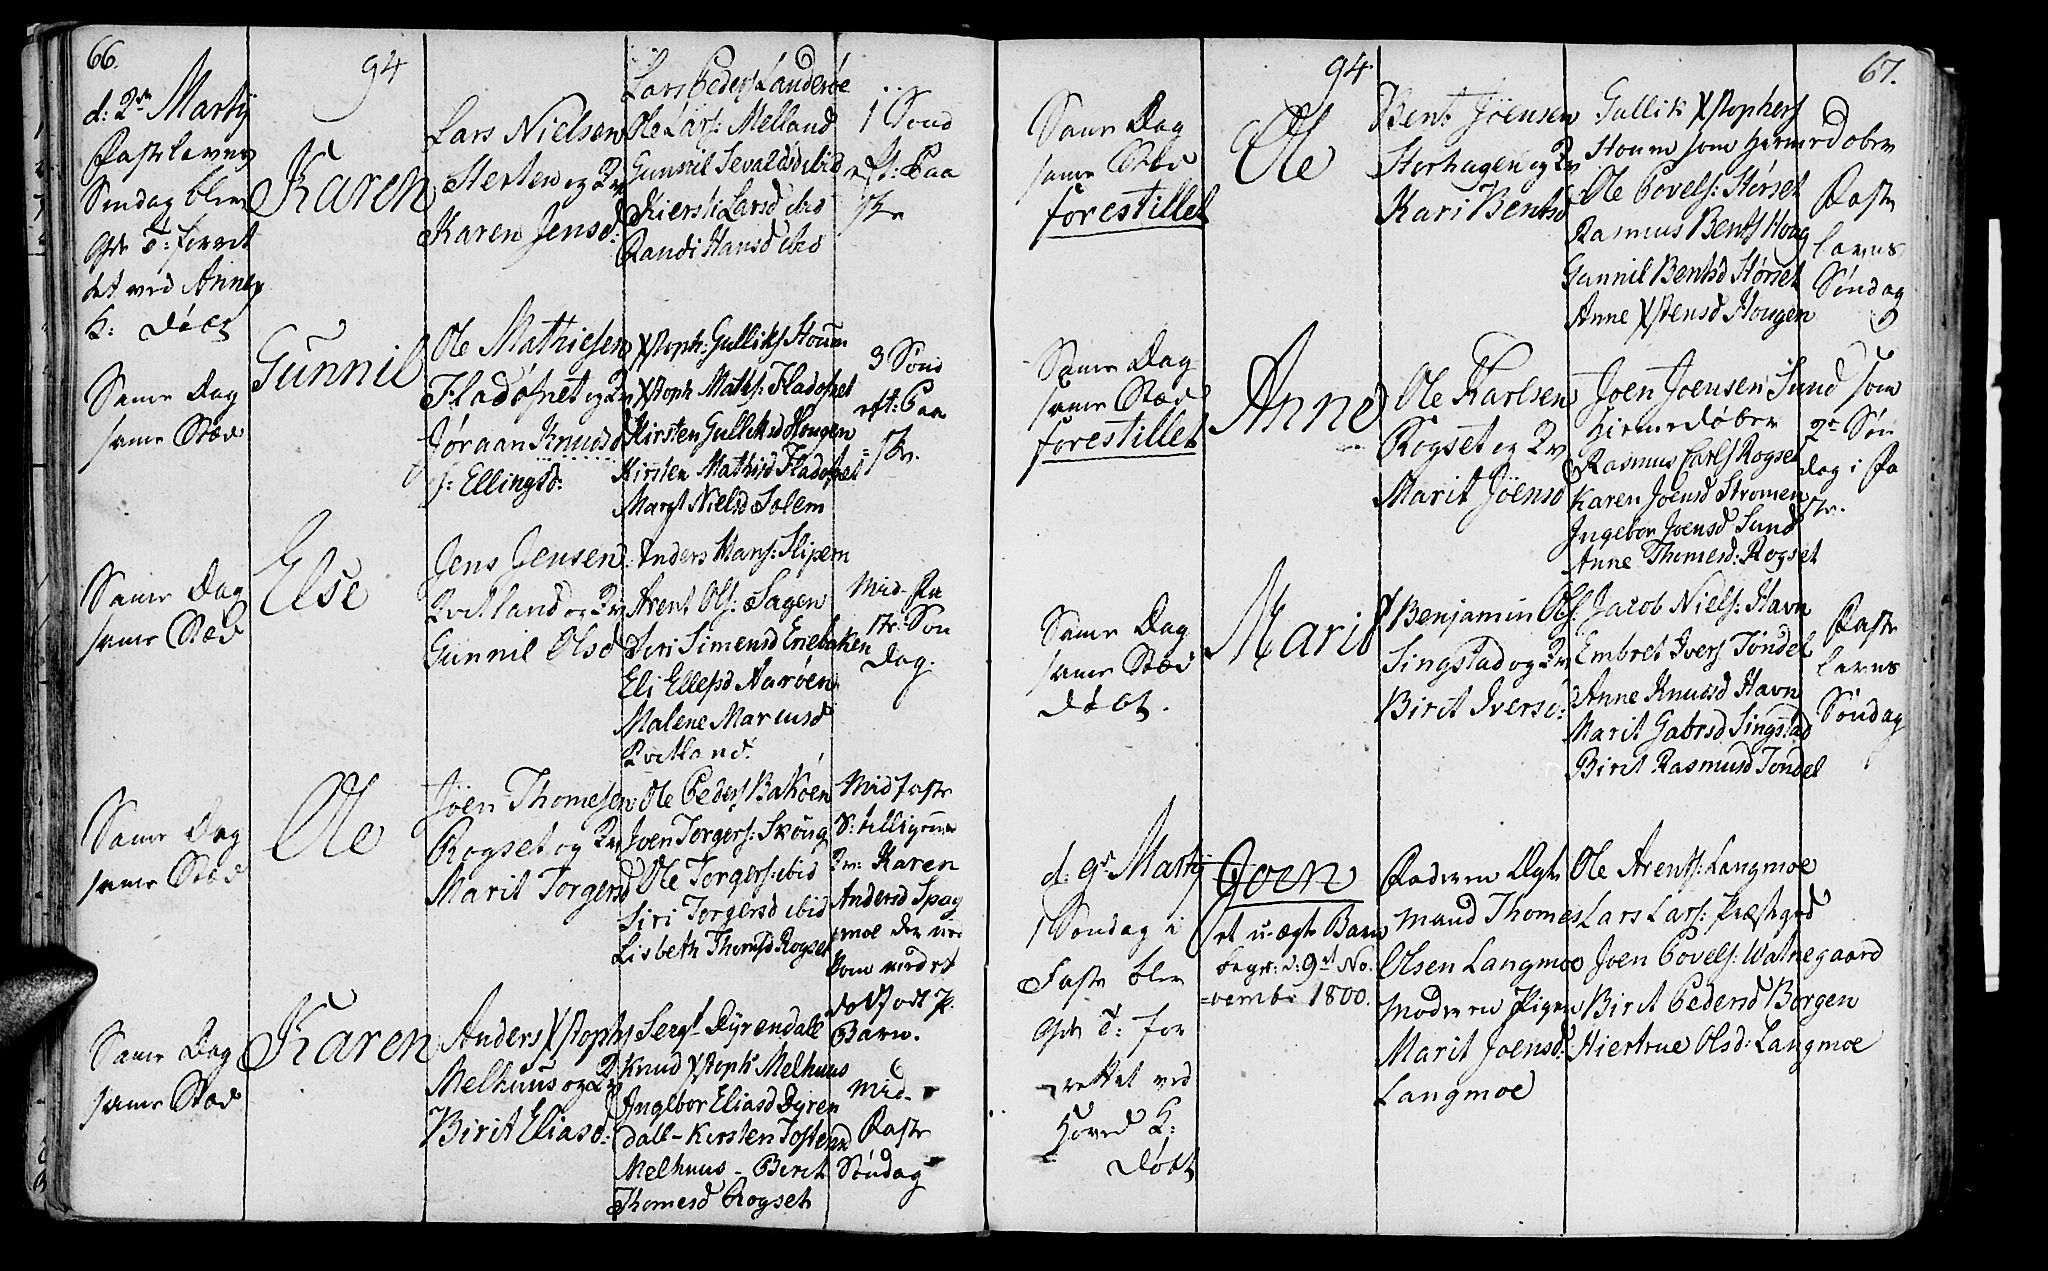 66.
94
d: 2den Martÿ
Fastelavens
Søndag blev
Gds T: forret
tet ved Annex
K: døbt
Karen
Lars Nielsen
Sterten og Kv
Karen Jensd:
Lars Peders Landerøe
Ole Lars: Melland
Gunnil Sevaldsd ibid
Kiersti Larsd ibid
Randi Hansd ibid
1 Sönd
eft: Paa
ske
Same Dag
same Stæd
Gunnil
Ole Mathiesen
Fladøset og Kv
Jøraan Knudsd
s: Ellingsd:
Xstoph: Gulliks Houm
Xstoph Maths: Fladøset
Kirsten Gulliksd Hougen
Kirsten Mathisd Fladøset
Margt Nielsd Solem
3 Sönd
eft: Paa
ske.
Same Dag
same Stæd
Else
Jens Jensen
Qvitland og Kv
Gunnil Olsd
Anders Hans: Slipern
Arent Ols: Sagen
Siri Simensd Enebaken
Eli Ellefsd Aarøen
Malene Marcusd
Qvitland.
Mid-Fa
ste-Søn
dag.
Same Dag
same Stæd
Ole
Jöen Thomesen
Rogset og Kv
Marit Torgersd
Ole Peders Bakøen
Iven Torgers: Skoug
Ole Torgers: ibid
Siri Torgersd ibid
Lisbeth Thomsd Rogset
Midfaste
S: tilligeme
Kv: Karen
Andersd Spag
moe der var
kom med et
dødfødt P.
Barn.
Same Dag
same Stæd
Karen
Anders Xstophs
Melhuus og Kv
Birit Eliasd:
Sergt Dyrendall
Knud Xstoph Melhuus
Ingebor Eliasd Dyren
dall - Kirsten Tostensd
Melhuus - Berit
Thomesd Rogset
Mid-
Faste
Søndag
94.
67.
Same Dag
same Stæd
forestillet
Ole
Bent Jöensen
Storhagen og Kv
Kari Bentsd
Gullik Xstophers
Houm som hiemedøber
Ole Povels: Hørset
Rasmus Bents Hoag
Gunnil Bentsd Hørset
Anne Xstensd Hougen
Faste
lavns
Søndag
Same Dag
same Stæd
forestillet
Anne
Ole Karlsen
Rogset og Kv
Marit Jöensd
Joen Joensen Sund som
hiemedøber
Rasmus Carls Rogset
Karen Joensd Strømen
Ingebor Joensd Sund
Anne Thomesd: Rogset
2den Søn
dag i Fa
ste.
Same Dag
same Stæd
døbt.
Marit
Benjamin Ols
Singstad og Kv
Birit Iversd:
Jacob Niels: Havn
Embret Ivers Tøndel
Anne Knudsd Havn
Marit Gabrsd Singstad
Birit Rasmusd Tøndel
Faste
lavns
Søndag
d: 9de Martÿ
1 Søndag i
Faste blev
Gds T: for
rettet ved
Hoved K:
døbt
Joen
et u-ægte Barn
begr: d: 9de No-
vembr 1800.
Faderen Ægte
mand Thomes
Olsen Langmoe
Moderen Pigen
Marit Joensd:
Langmoe
Ole Arents: Langmoe
Lars Lars: Præstegrd
Joen Povels: Watnegaard
Birit Pedersd Borgen
Hiertrue Olsd: Langmoe